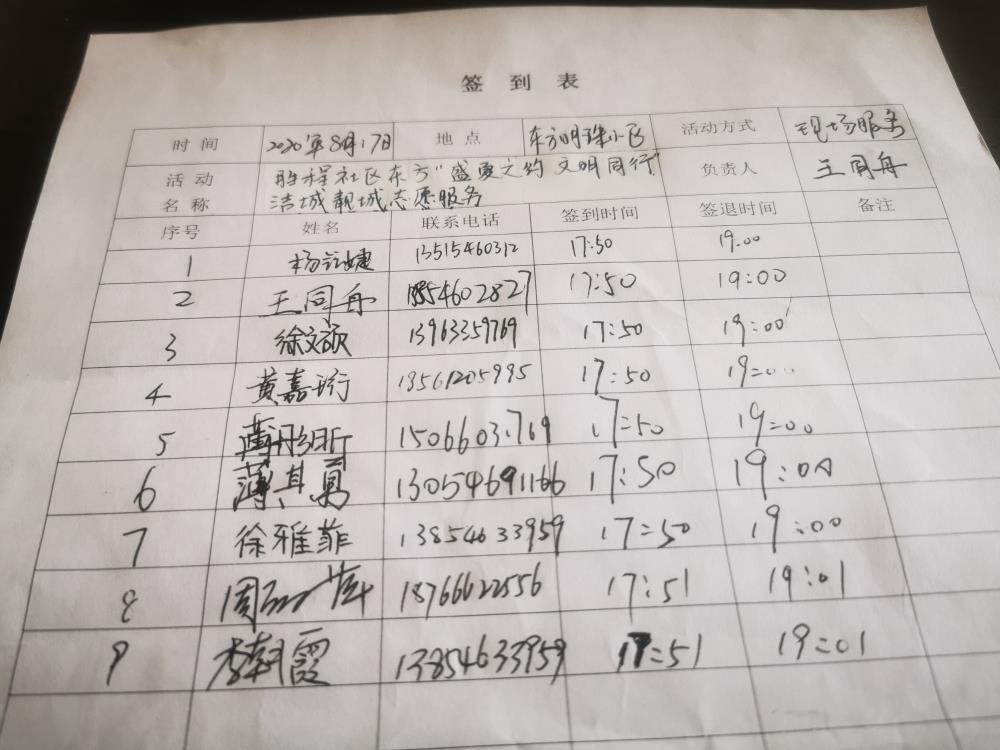 签到表
时间 2020年8月17日 地点 东方明珠小区 活动方式 现场服务
活动名称 胜程社区东方"盛夏之约 文明同行" 负责人 王同舟
洁城靓城志愿服务
序号 姓名 联系电话 签到时间 签退时间 备注
1 杨 婕 13515460312 17:50 19:00
2 王同舟 17:50 19:00
3 徐文硕 13963359769 17:50 19:00
4 黄嘉珩 18561205995 17:50 19:00
5 17:50 19:00
6 薄其勇 17:50 19:00
7 徐雅菲 13854633959 17:50 19:00
8 周 18766622556 17:51 19:01
9 李朝霞 13854633959 17:51 19:01